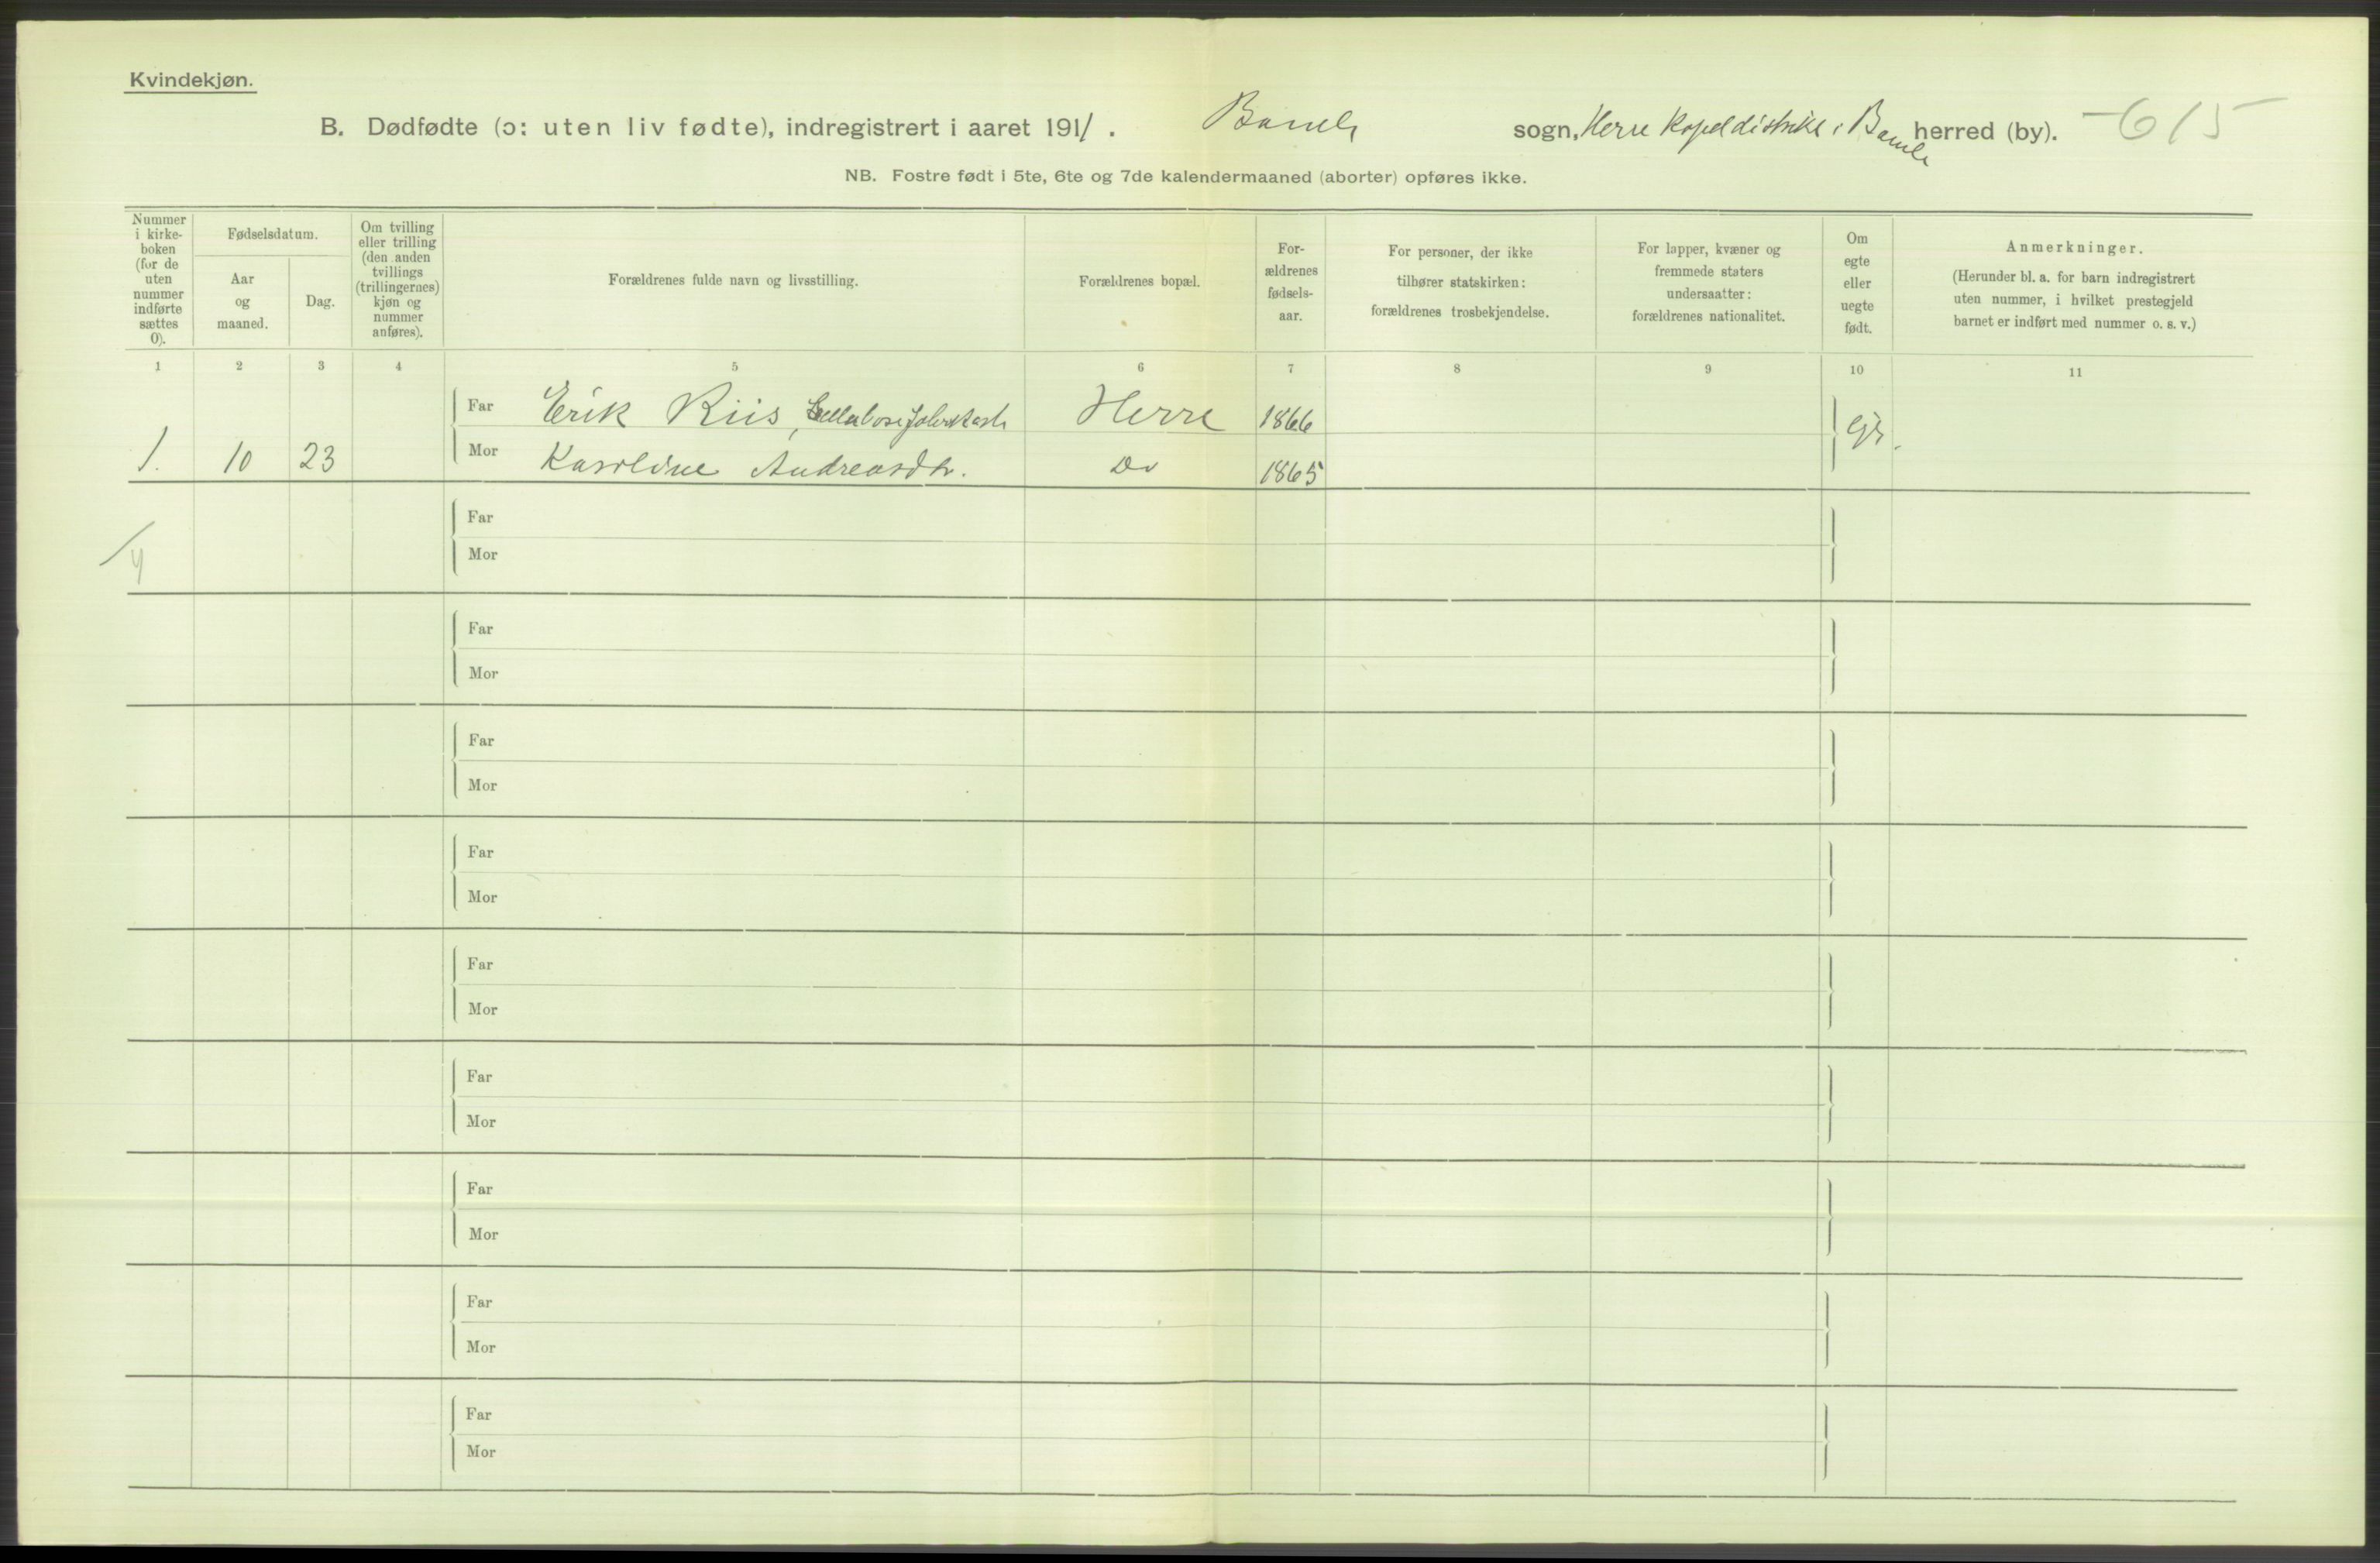 Kvindekjøn.
B. Dødfødte (ɔ: uten liv fødte), indregistrert i aaret 1911. Bamle sogn, Herre Kapeldistrikt i Bamle herred (by). -615
NB. Fostre født i 5te, 6te og 7de kalendermaaned (aborter) opføres ikke.
Nummer
i kirke-
boken
(for de
uten
nummer
indførte
sættes
0).
Fødselsdatum.
Aar
og
maaned.
Dag.
Om tvilling
eller trilling
(den anden
tvillings
(trillingernes)
kjøn og
nummer
anføres).
Forældrenes fulde navn og livsstilling.
Forældrenes bopæl.
For-
ældrenes
fødsels-
aar.
For personer, der ikke
tilhører statskirken:
forældrenes trosbekjendelse.
For lapper, kvæner og
fremmede staters
undersaatter:
forældrenes nationalitet.
Om
egte
eller
uegte
født.
Anmerkninger.
(Herunder bl. a. for barn indregistrert
uten nummer, i hvilket prestegjeld
barnet er indført med nummer o. s. v.)
1 2 3 4 5 6 7 8 9 10 11
Far Erik Riis, Herre 1866
1. 10 23 Mor Karoline Andreasdtr. Do 1865
Far
Mor
Far
Mor
Far
Mor
Far
Mor
Far
Mor
Far
Mor
Far
Mor
Far
Mor
Far
Mor